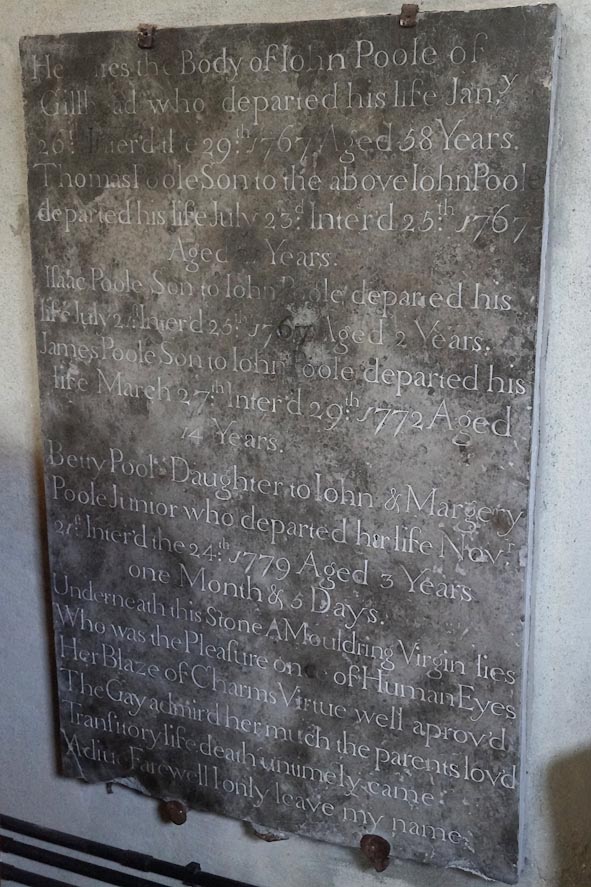 the Body of Iohn Poole of
who departed his life Jan,y
26th Interd the 29th 1767 Aged 58 Years.
Thomas Poole Son to the above Iohn Poole
departed his life July 23d Interd 25th 1767
Aged Years.
Isaac Poole Son to Iohn Poole departed his
life July Interd 25th 1767 Aged 2 Years.
James Poole Son to Iohn Poole departed his
life March 27th Inter'd 29th 1772 Aged
14 Years.
Betty Poole Daughter to Iohn & Margery
Poole Junior who departed her life Nov,r
21st Interd the 24th 1779 Aged 3 Years
one Month & 5 Days.
Underneath this Stone A Mouldring Virgin lies
Who was the Pleasure of Human Eyes
Her Blaze of Charms Virtue well aprov'd
The Gay admird her much the parents lov'd
Transitory life death untimely came
Adieu Farewell I only leave my name